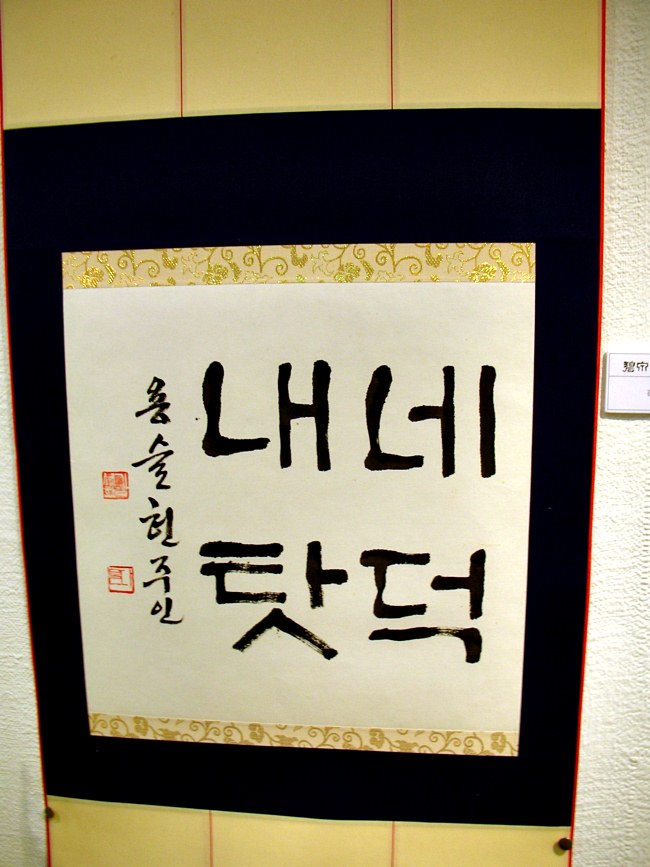 네덕
내탓
용슬헌주인